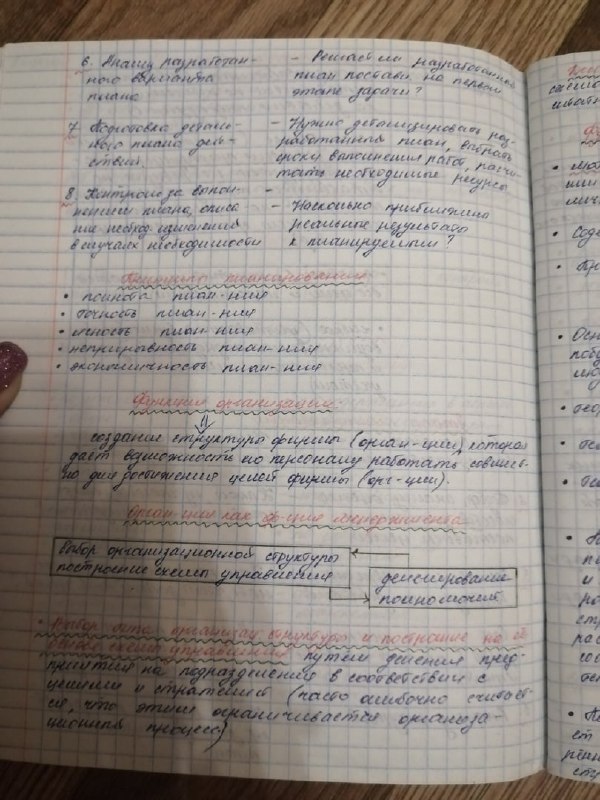 6. Анализ разработан-
ного варианта
плана
- Решает ли разработанный
план поставл. на первом
этапе задачи?
7. Подготовка деталь-
ного плана дей-
ствий.
- Нужно детализировать раз-
работанный план, выбрать
сроки выполнения работ, расчи-
тать необходимые ресурсы
8. Контроль за выпол-
нением плана, описа
ние необход. изменений
в случаях необходимости
-
- Насколько приблизились
реальные результаты
к планируемым?
Принципы планирования:
• полнота план-ния
• точность план-ния
• ясность план-ния
• непрерывность план-ния
• экономичность план-ния
Функция организации:
создание структуры фирмы (орган-ции) которая
даёт возможность его персоналу работать совмест-
но для достижения целей фирмы (орг-ции).
Орган-ция как ф-ция менеджмента
Выбор организационной структуры
построение схемы управления
делегирование
полномочий
• Выбор организац структуры и построение на её
схемы управления путём деления пред-
приятия на подразделения в соответствии с
целями и стратегией (часто ошибочно считает-
ся, что этим ограничивается организа-
ционный процесс)